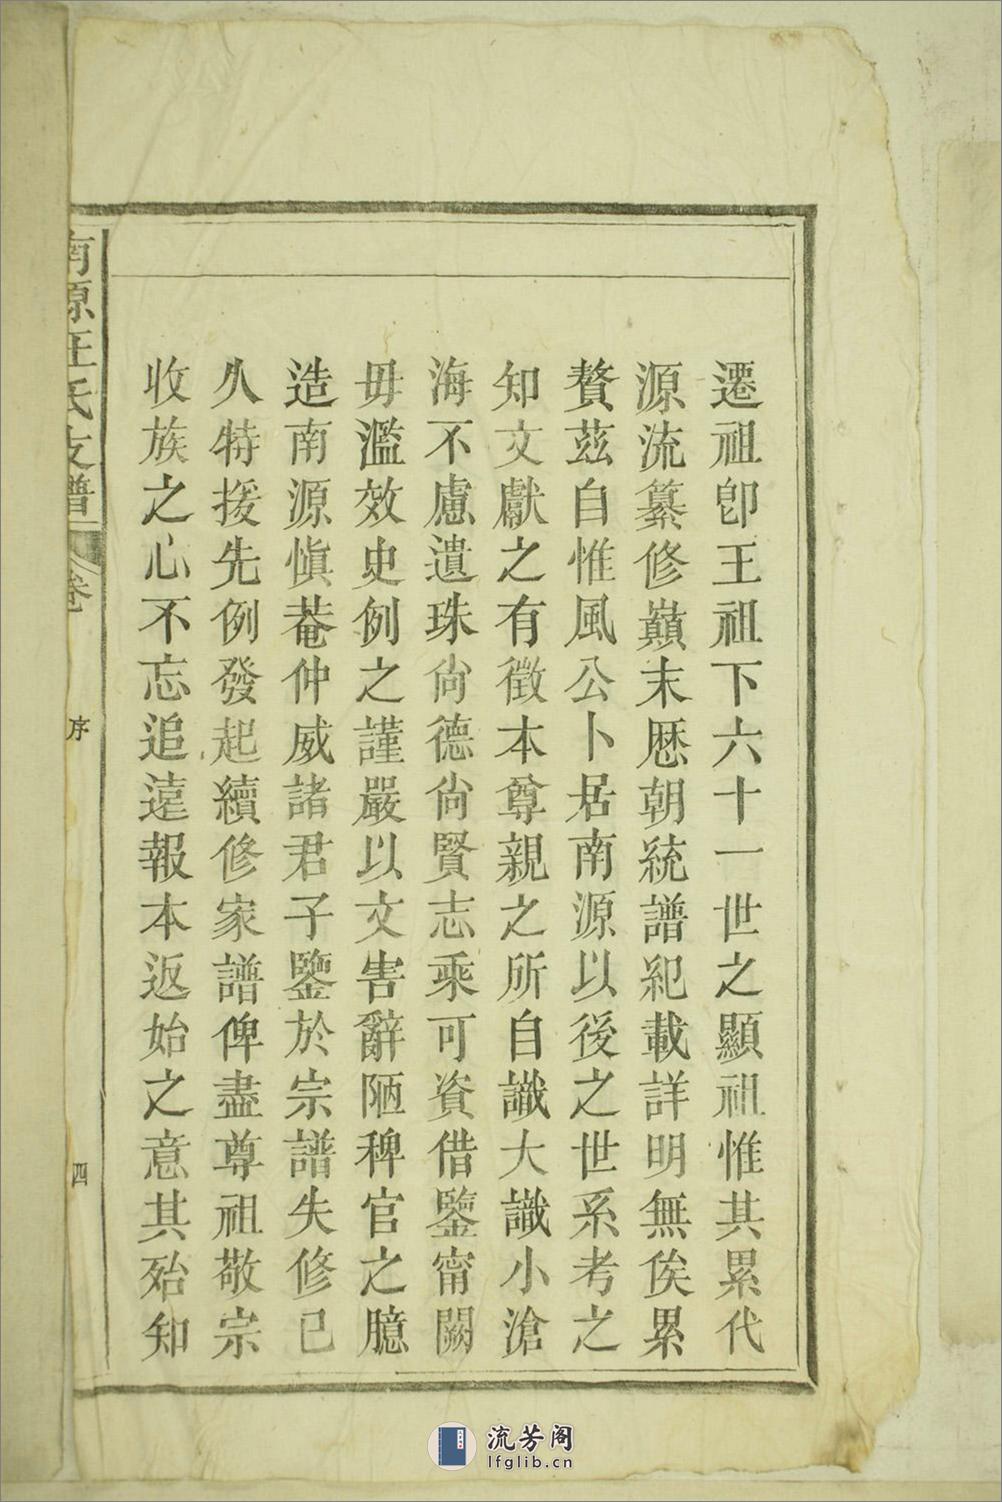 遷祖卽王祖下六十一世之顯祖惟其累代
源流纂修巔末歷朝統譜紀載詳明無俟累
贅茲自惟風公卜居南源以後之世系考之
知文獻之有徵本尊親之所自識大識小滄
海不慮遺珠尙德尙賢志乘可資借鑒甯闕
毋濫效史例之謹嚴以文害辭陋稗官之臆
造南源愼菴仲威諸君子鑒於宗譜失修已
久特援先例發起續修家譜俾盡尊祖敬宗
收族之心不忘追遠報本返始之意其殆知
南源汪氏支譜 卷 序 四
流芳阁
lfglib.cn